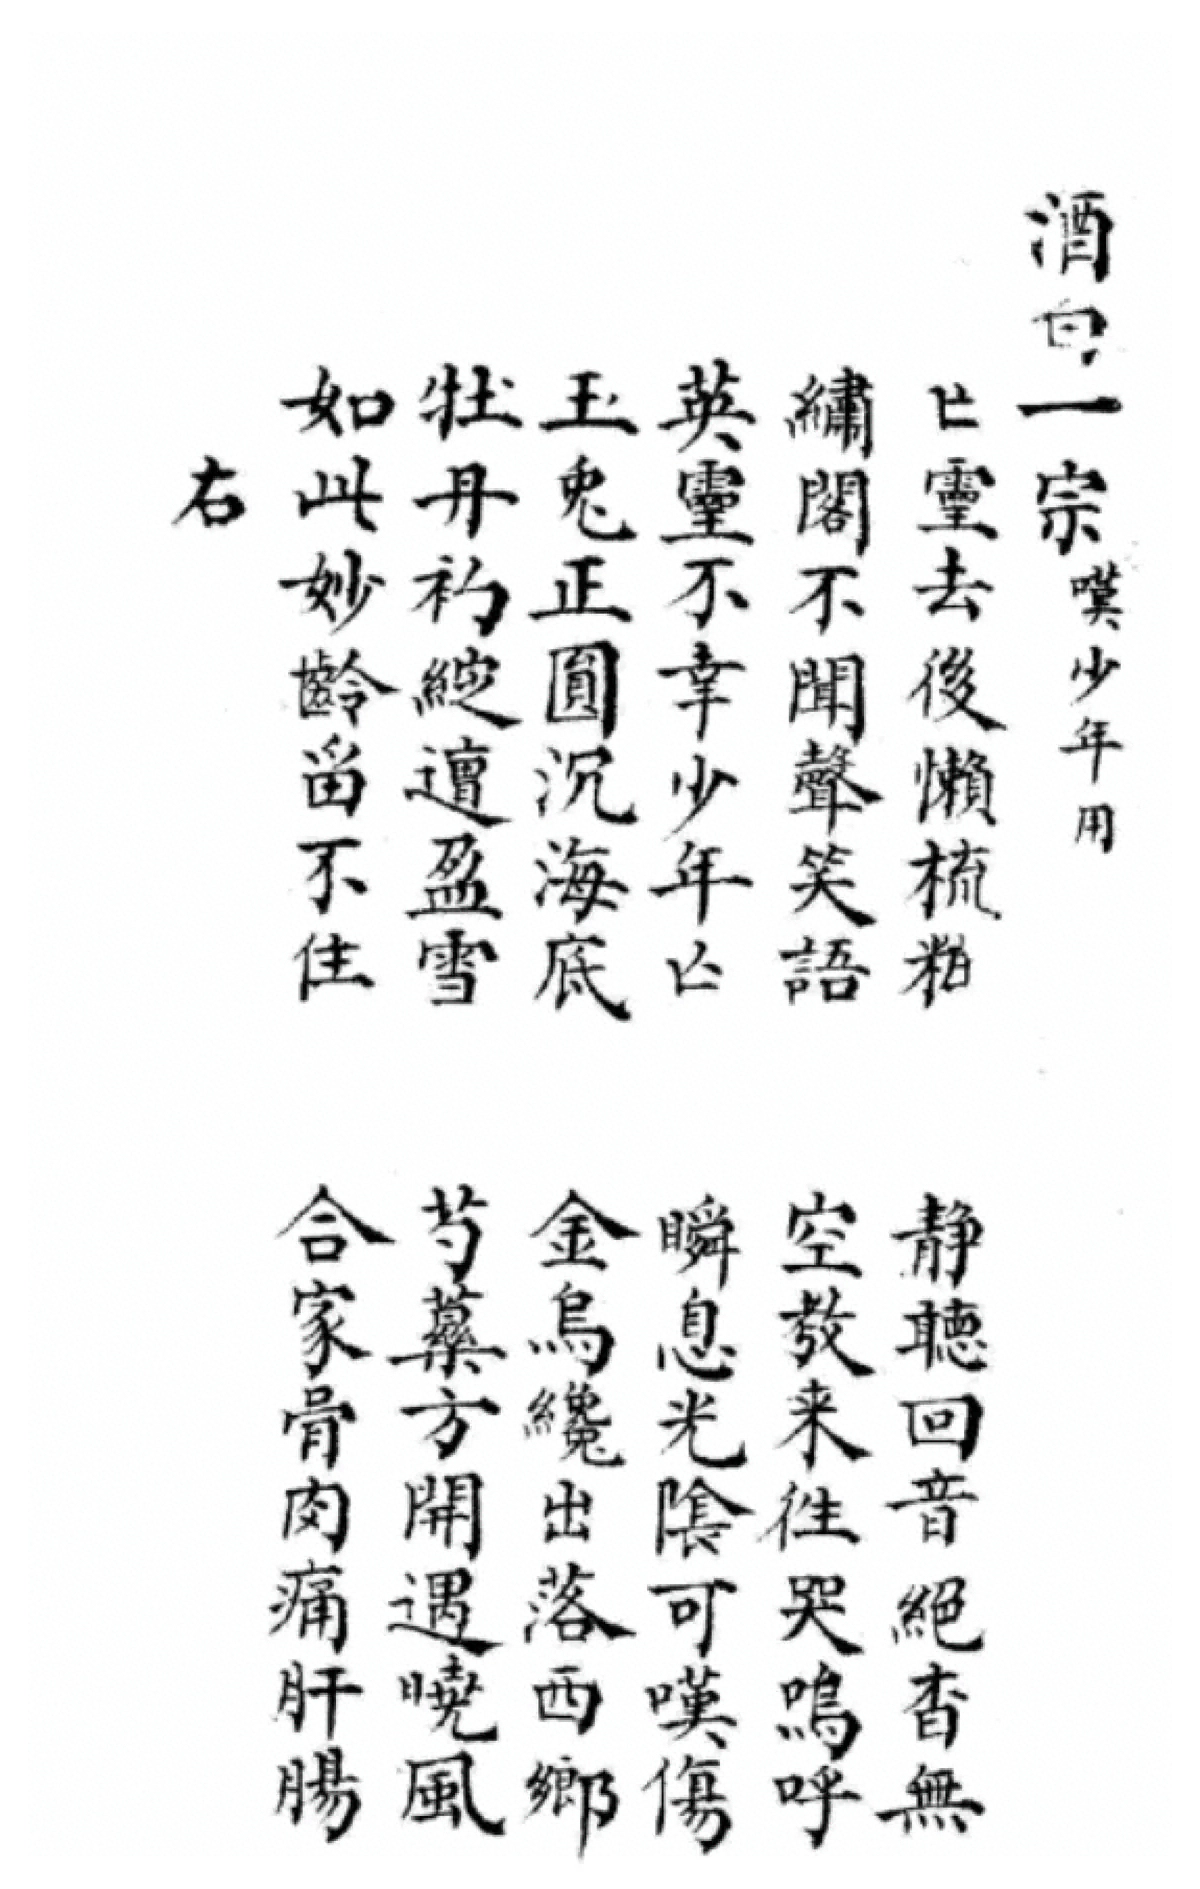 酒白一宗 嘆少年用
亡靈去後懶梳粧 静聽回音絕杳無
繡閣不聞聲笑語 空教来往哭嗚呼
英靈不幸少年亡 瞬息光陰可嘆傷
玉兔正圓沉海底 金烏纔出落西鄉
牡丹初綻遭盈雪 芍藥方開遇曉風
如此妙齡畄不住 合家骨肉痛肝腸
右